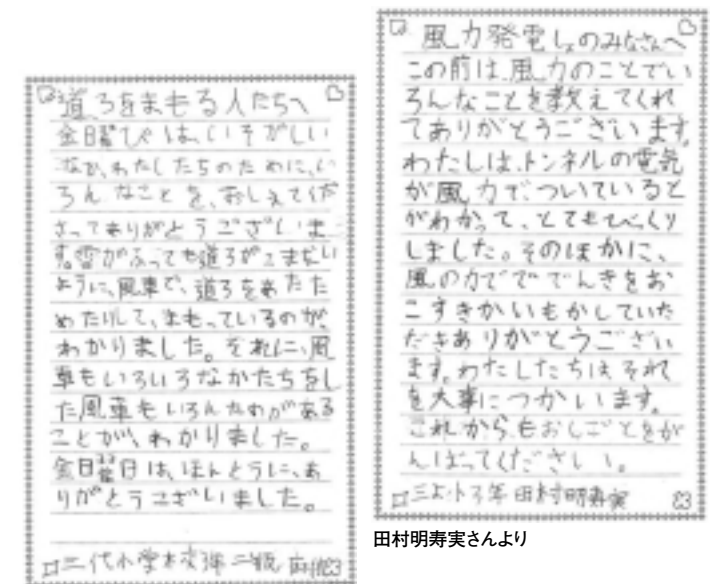 道ろをまもる人たちへ
金曜びは、いそがしい
なか、わたしたちのために、い
ろんなことを、おしえてくだ
さってありがとうございま
す。雪がふっても道ろがこまない
ように、風車で、道ろをあたた
めたりして、まもっているのが、
わかりました。それに、風
車もいろいろなかたちをし
た風車もいろんなのがある
ことが、わかりました。
金曜日は、ほんとうに、あ
りがとうございました。
二代小学校3年二組
風力発電しょのみなさんへ
この前は、風力のことでい
ろんなことを教えてくれ
てありがとうございます。
わたしは、トンネルの電気
が風力で、ついていると
がわかって、とてもびっくり
しました。そのほかに、
風の力ででんきをお
こすきかいもかしていた
だきありがとうござい
ます。わたしたちはそれ
を大事につかいます。
これからもおしごとをが
んばってください。
3年 田村明寿実
田村明寿実さんより